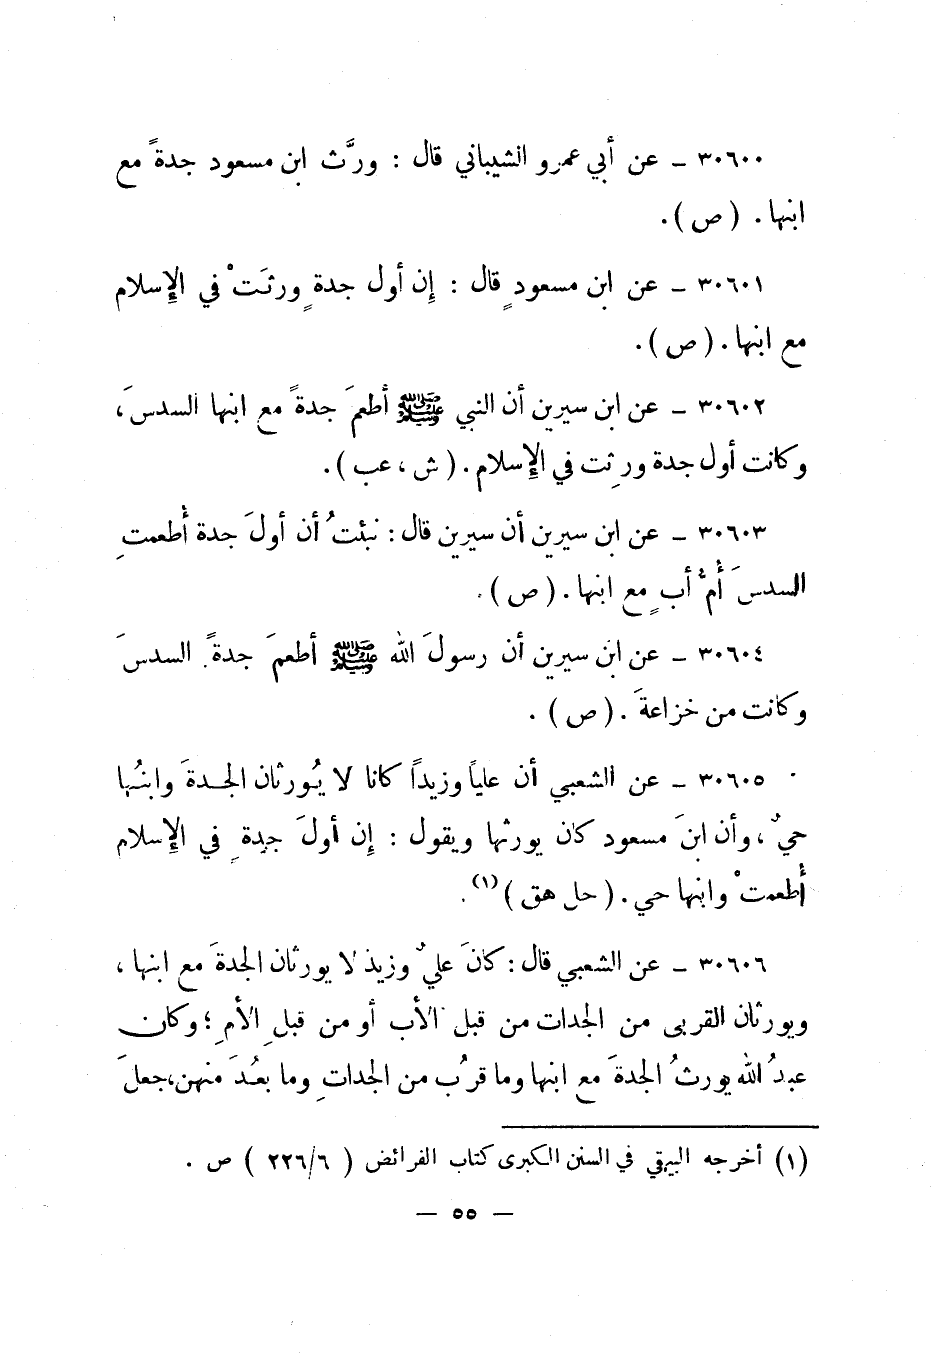 ٣٠٦٠٠ ـ عن أبي عمرو الشيباني قال : ورَّث ابن مسعود جدةً مع
ابنها . ( ص ) .
٣٠٦٠١ ـ عن ابن مسعودٍ قال : إن أول جدةٍ ورثَتْ في الإسلام
مع ابنها . ( ص ) .
٣٠٦٠٢ ـ عن ابن سيرين أن النبي ﷺ أطعمَ جدةً مع ابنها السدسَ ،
وكانت أول جدة ورِثت في الإسلام . ( ش ، عب ) .
٣٠٦٠٣ ـ عن ابن سيرين أن سيرين قال : نبئتُ أن أولَ جدة أُطعمتِ
السدسَ أُمُّ أبٍ مع ابنها . ( ص ) .
٣٠٦٠٤ ـ عن ابن سيرين أن رسولَ الله ﷺ أطعمَ جدةً السدسَ
وكانت من خزاعةَ . ( ص ) .
٣٠٦٠٥ ـ عن الشعبي أن علياً وزيداً كانا لا يُورثان الجـدةَ وابنُها
حيٌ ، وأن ابنَ مسعود كان يورثها ويقول : إن أولَ جدةٍ في الإسلام
أُطعمتْ وابنها حي . ( حل هق ) (١) .
٣٠٦٠٦ ـ عن الشعبي قال : كانَ عليٌ وزيد لا يورثان الجدةَ مع ابنها ،
ويورثان القربى من الجدات من قبل الأب أو من قبلِ الأمِ ؛ وكان
عبدُ الله يورثُ الجدةَ مع ابنها وما قرُب من الجداتِ وما بعُدَ منهن،جعلَ
(١) أخرجه البيهقي في السنن الكبرى كتاب الفرائض ( ٢٢٦/٦ ) ص .
— ٥٥ —